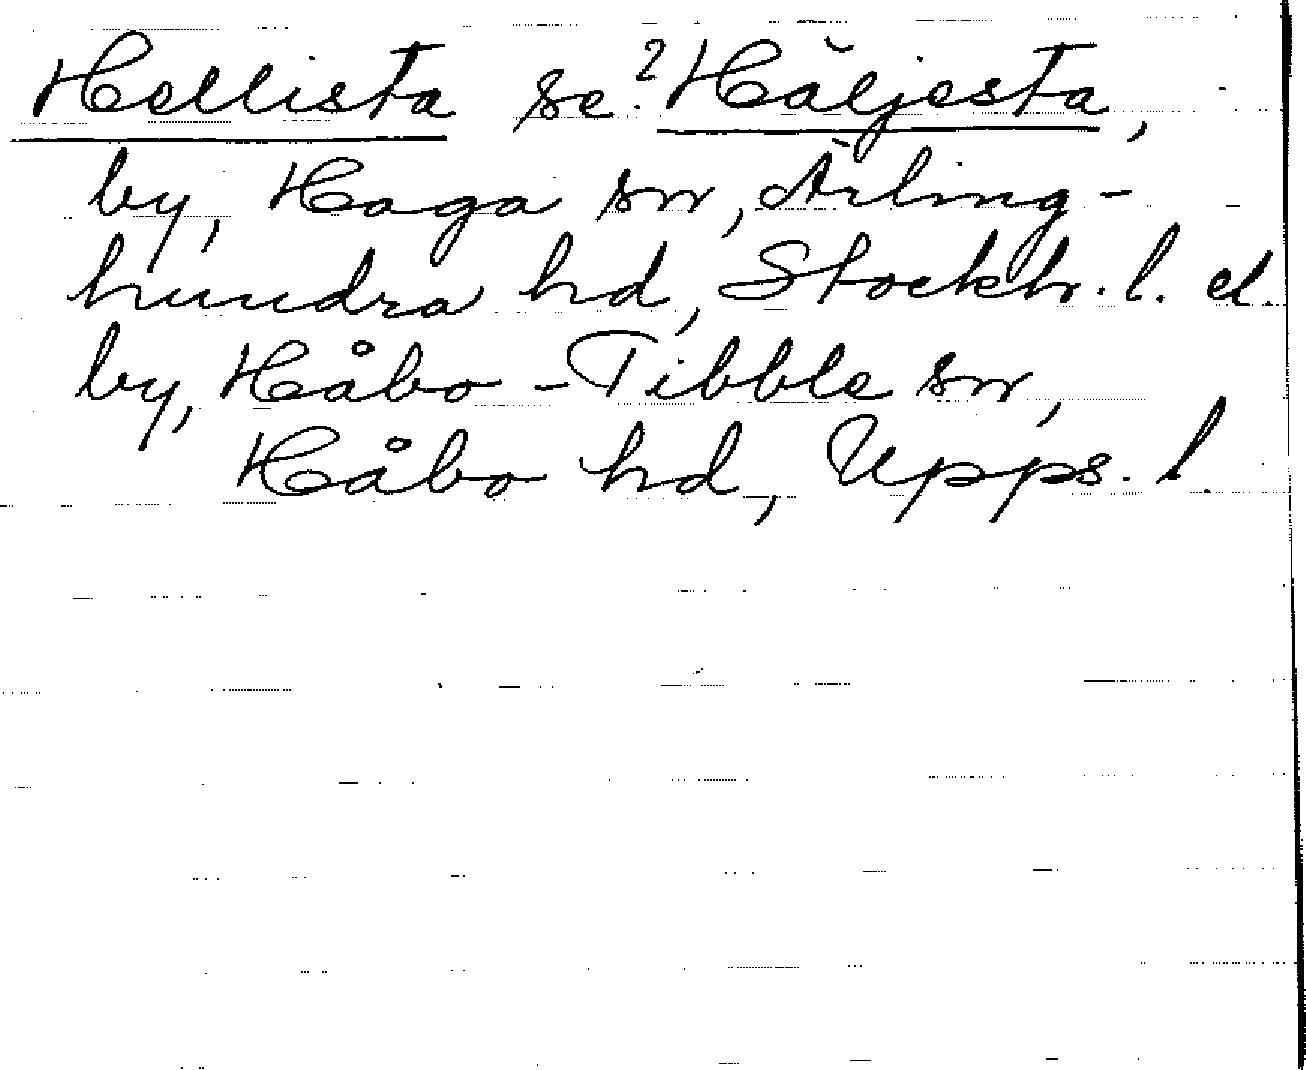 Hellista se ? Häljesta,
by, Haga sn, Ärling-
hundra hd, Stockh. l. el.
by, Håbo-Tibble sn,
Håbo hd, Upps. l.